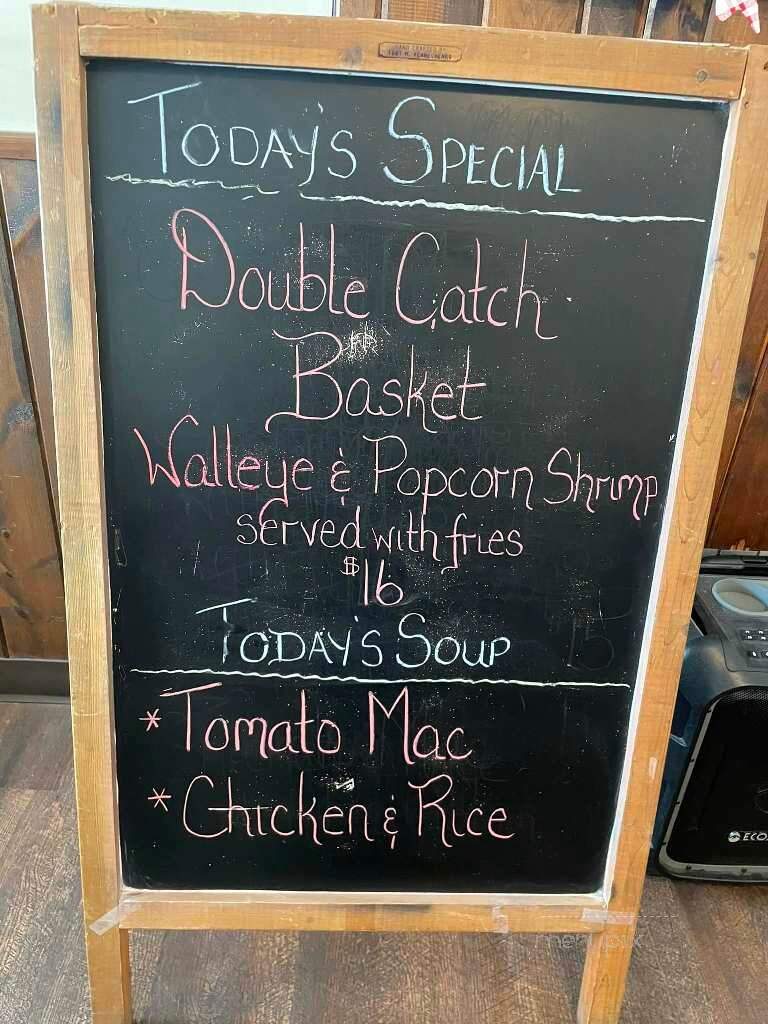 Today's Special
Double Catch
Basket
Walleye & Popcorn Shrimp
served with fries
$16
Today's Soup
* Tomato Mac
* Chicken & Rice